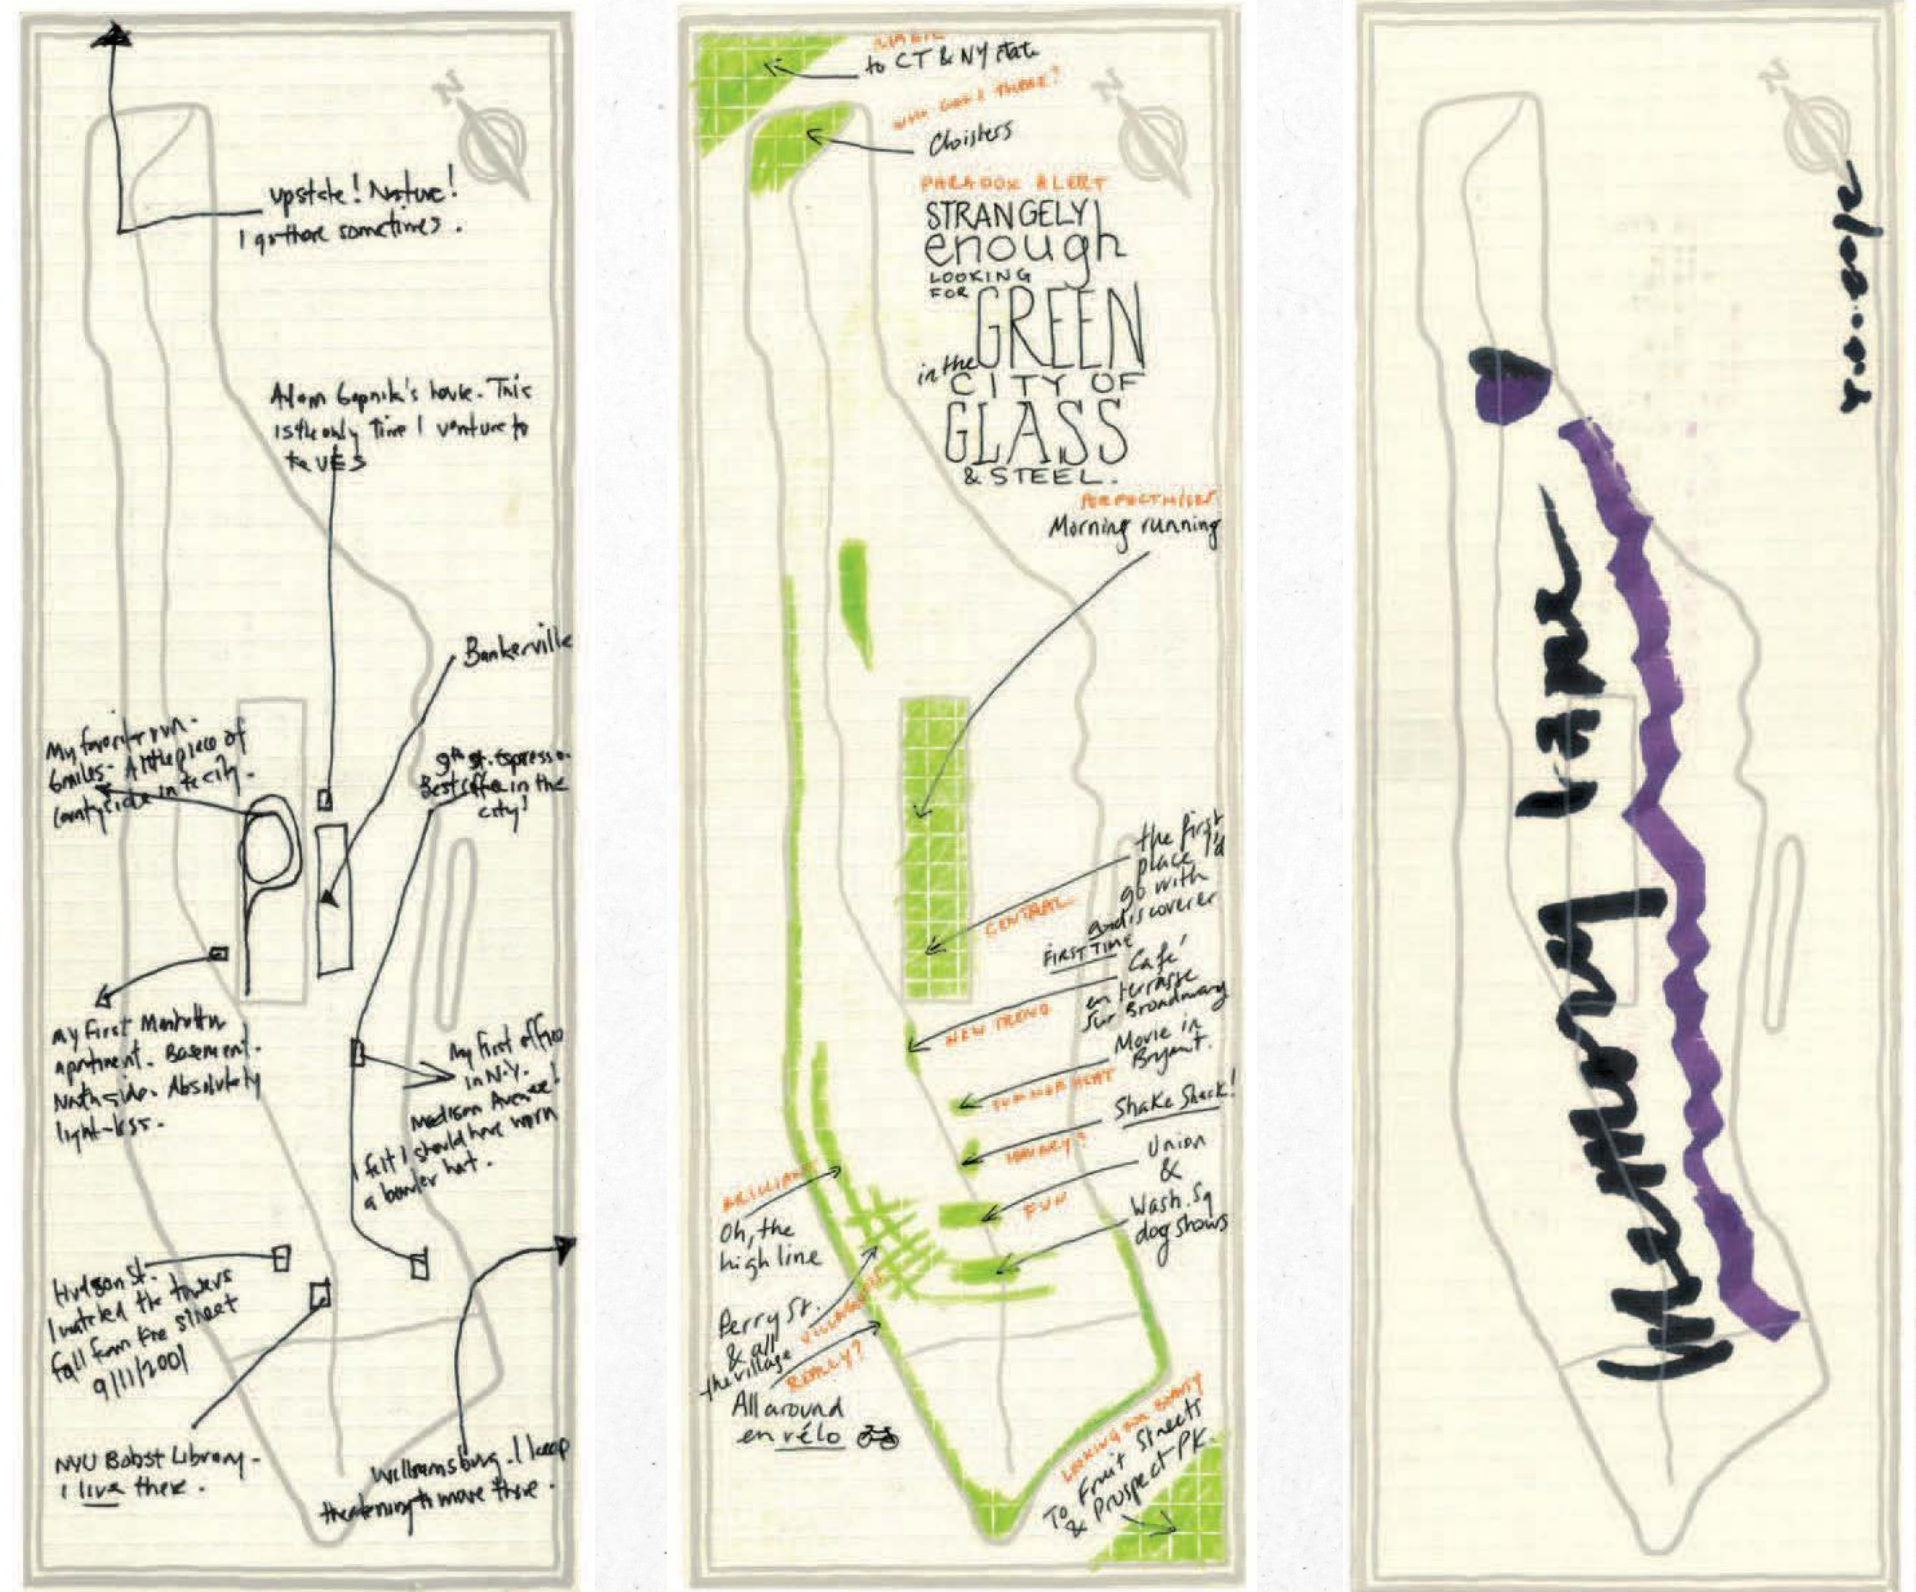 N
upstate! Nature!
I go there sometimes.
Adam Gopnik's house. This
is the only time I venture to
the UES
Bankerville
My favorite run.
6 miles. A little piece of
countryside in the city.
9th St. Espresso.
Best coffee in the
city!
my first Manhattan
apartment. Basement.
North side. Absolutely
light-less.
My first office
in N.Y.
Madison Avenue!
I felt I should have worn
a bowler hat.
Hudson St.
I watched the towers
fall from the street
9/11/2001
NYU Bobst Library.
I live there.
Williamsburg. I keep
threatening to move there.
N
to CT & NY state
Cloisters
PARADOX ALERT
STRANGELY
enough
LOOKING
FOR
GREEN
in the
CITY OF
GLASS
& STEEL.
Morning running
the first
place I'd
go with
a discoverer
CENTRAL
FIRST TIME
Café
en terrasse
sur Broadway
NEW TREND
Movie in
Bryant.
SUMMER HEAT
Shake Shack!
HUNGRY?
Union
&
Wash. Sq
dog shows
FUN
BRILLIANT
Oh, the
high line
Perry St.
& all
the village
VILLAGE
REALLY?
All around
en vélo
LOOKING FOR BEAUTY
To Fruit Streets
& Prospect PK.
N
Memory lane